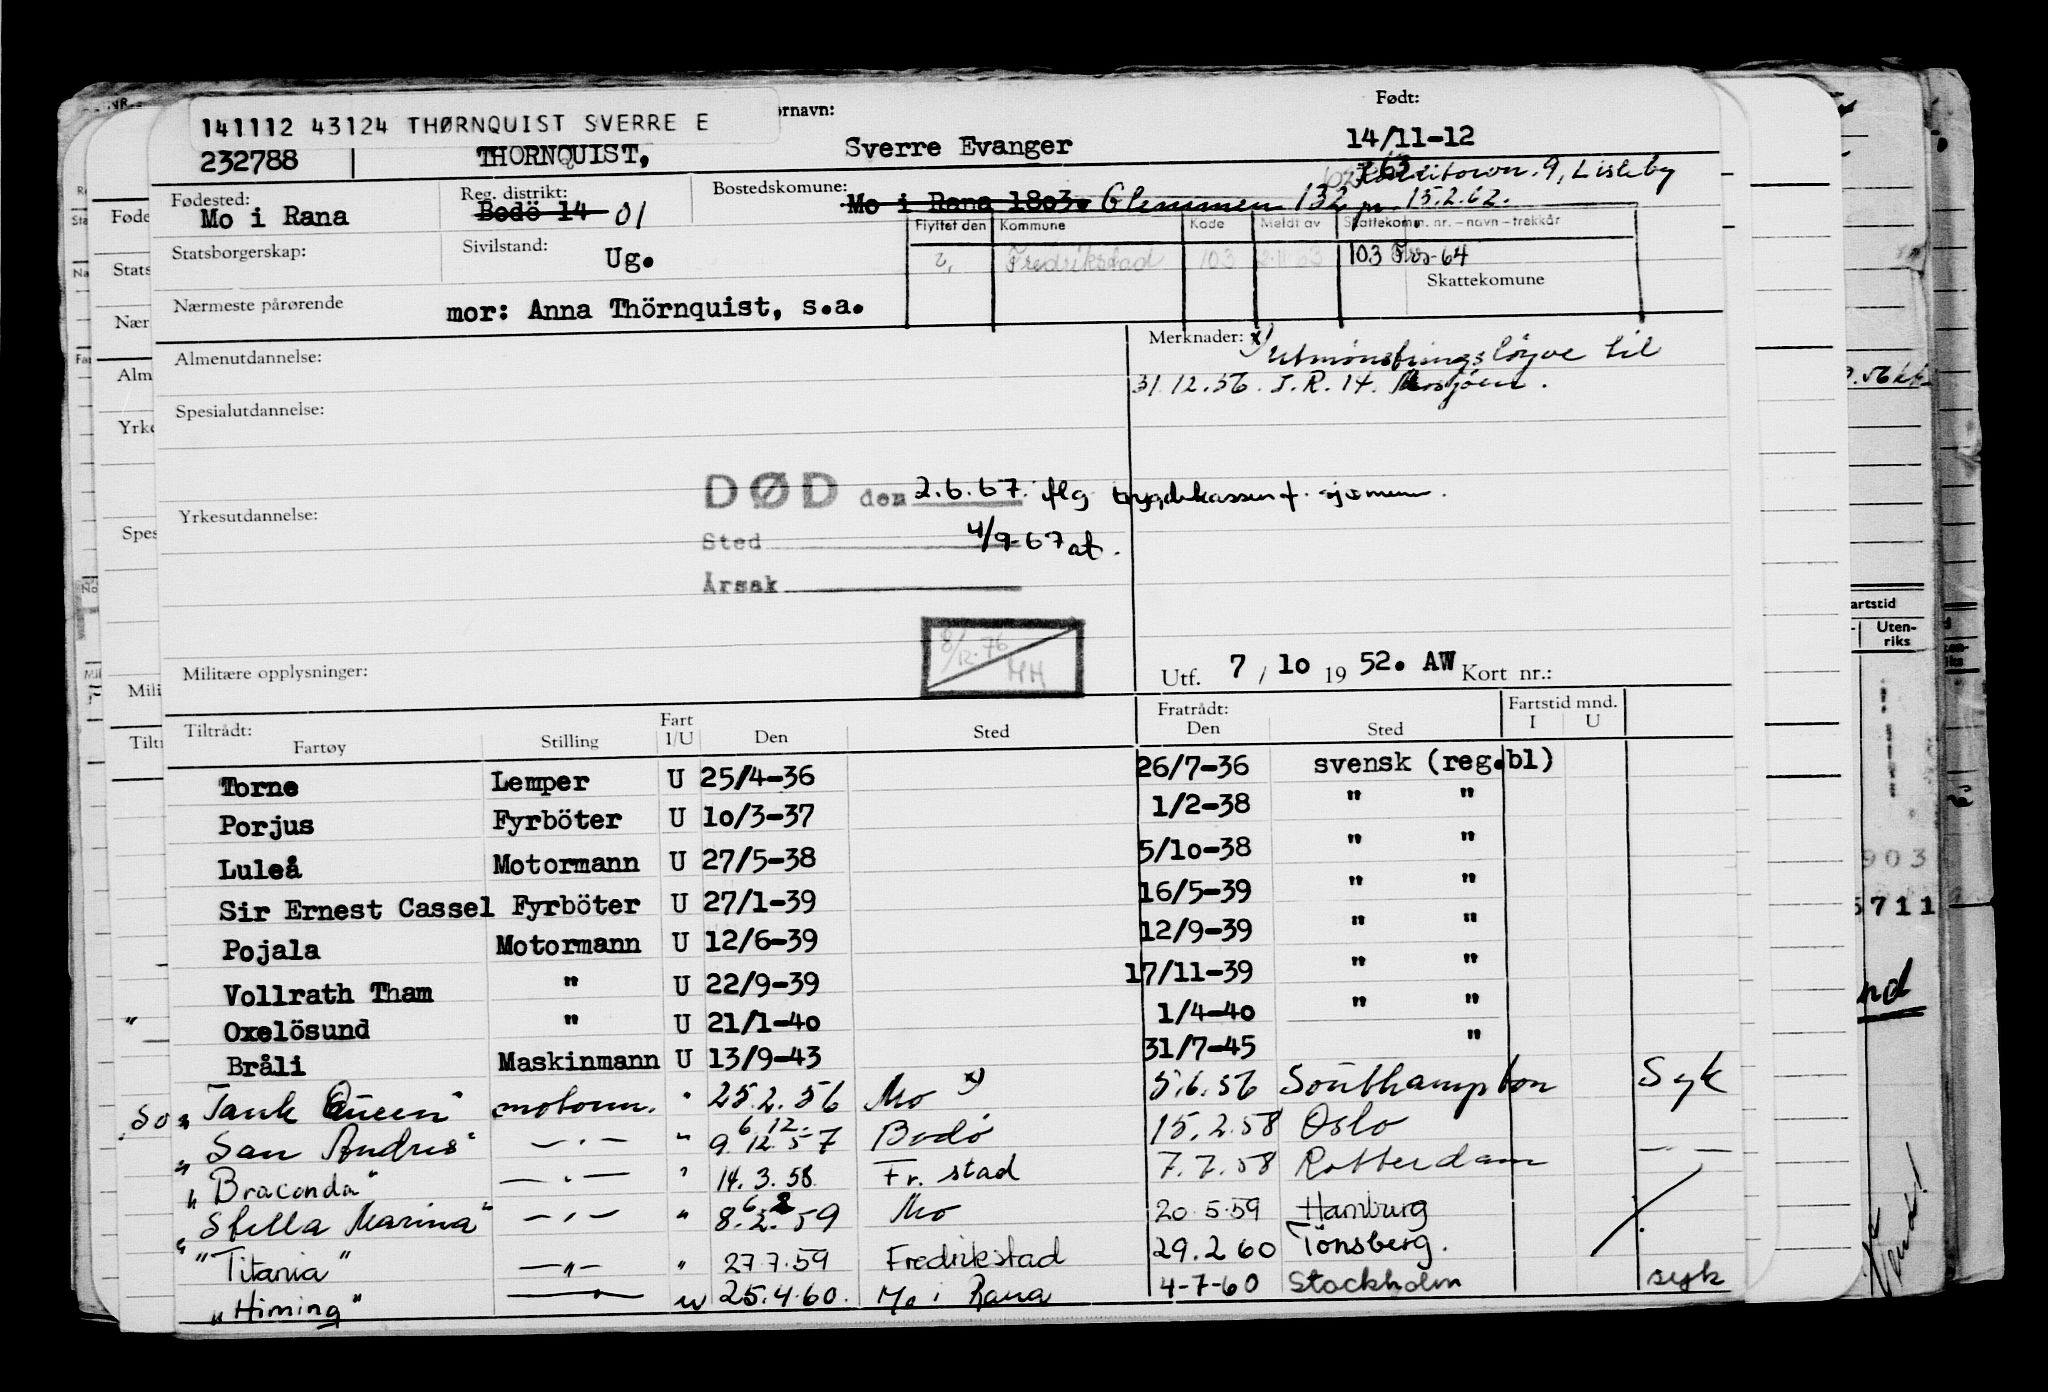 141112 43124 THØRNQUIST SVERRE E
ornavn:
Født:
232788 THORNQUIST, Sverre Evanger 14/11-12
63
9, Lisleby
Fødested: Mo i Rana
Reg. distrikt: Bodö 14 01
Bostedskomune: Mo i Rana 18o3. Glemmen 132 pr. 15.2.62.
Statsborgerskap:
Sivilstand: Ug.
Flyttet den Kommune Kode Meldt av Skattekomm. nr. – navn – trekkår
Fredrikstad 103 2.11.63 103 Frs-64
Skattekomune
Nærmeste pårørende mor: Anna Thörnquist, s.a.
Almenutdannelse:
Merknader: x) Utmønstringsløyve til
31.12.56. I.R. 14. Mosjøen.
Spesialutdannelse:
DØD den 2.6.67. flg trygdekassen f. sjømenn.
Yrkesutdannelse:
Sted 4/9-67 at.
Årsak
8/12.76
HH
Militære opplysninger:
Utf. 7 / 1o 19 52. AW Kort nr.:
Tiltrådt: Fartøy Stilling Fart I/U Den Sted Fratrådt: Den Sted Fartstid mnd. I U
Torne Lemper U 25/4-36 26/7-36 svensk (reg.bl)
Porjus Fyrböter U 1o/3-37 1/2-38 " "
Luleå Motormann U 27/5-38 5/1o-38 " "
Sir Ernest Cassel Fyrböter U 27/1-39 16/5-39 " "
Pojala Motormann U 12/6-39 12/9-39 " "
Vollrath Tham " U 22/9-39 17/11-39 " "
Oxelösund " U 21/1-4o 1/4-4o " "
Bråli Maskinmann U 13/9-43 31/7-45 "
so "Tank Queen" motorm. " 25.2.56 Mo x) 5.6.56 Southampton Syk
"San Andres" —·— " 9.12.57 6.12. Bodö 15.2.58 Oslo
"Braconda" —·— " 14.3.58. Fr.stad 7.7.58 Rotterdam — —
"Stella Marina" —·— " 8.2.59 Mo 20.5.59 Hamburg
"Titania" —"— " 27.7.59 Fredrikstad 29.2 60 Tönsberg.
"Himing" — u 25.4.60. Mo i Rana 4-7-60 Stockholm syk
Føde
Stats
Nær
Alm
Yrke
Spes
Mili
Tilt
artstid
Uten-
riks
903
5711
nd